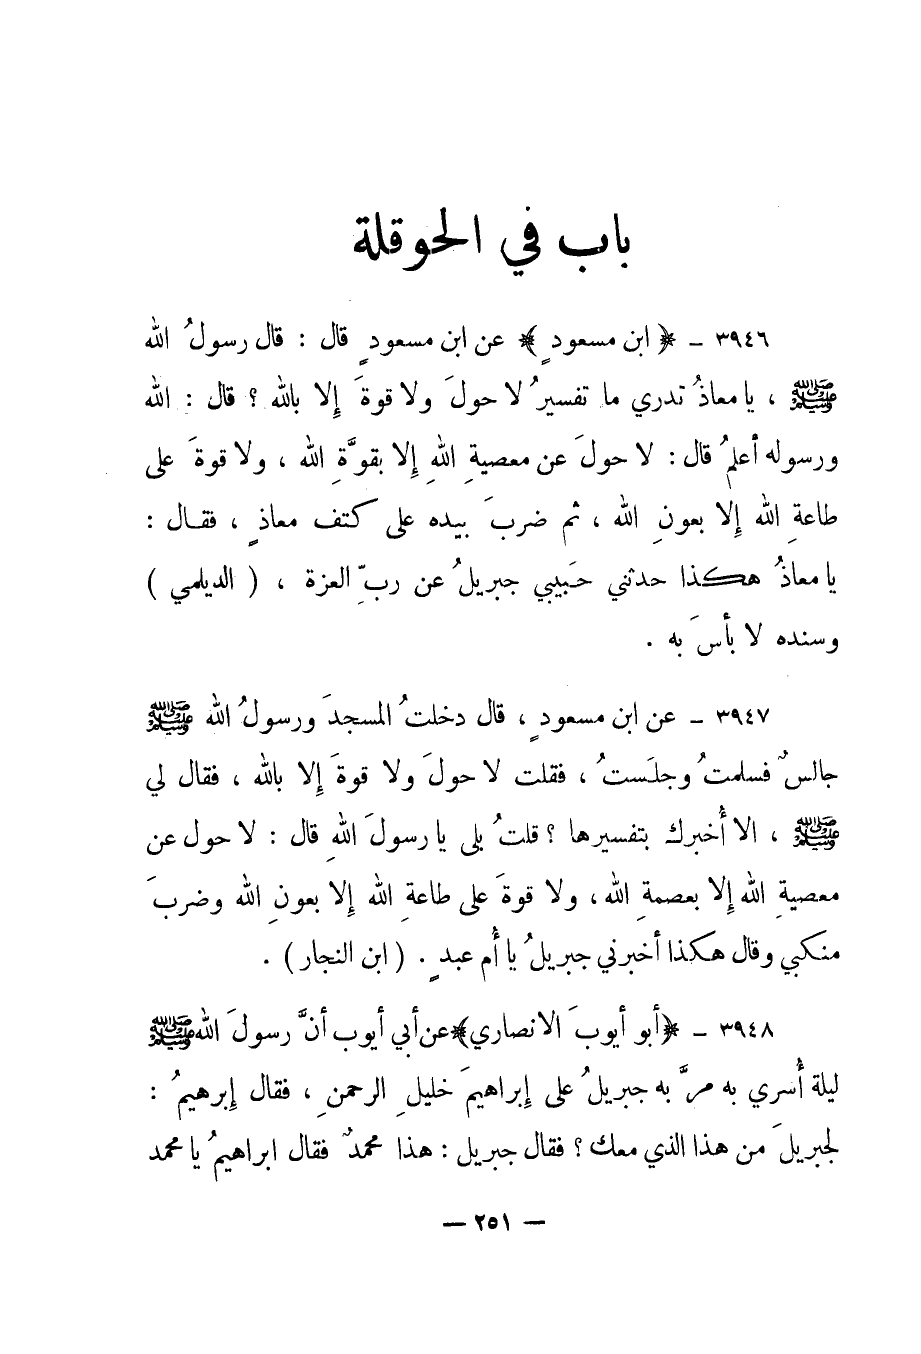 باب في الحوقلة
٣٩٤٦ ـ ﴿ ابن مسعودٍ ﴾ عن ابن مسعودٍ قال : قال رسولُ الله
ﷺ ، يا معاذُ تدري ما تفسيرُ لا حولَ ولا قوةَ إِلا بالله ؟ قال : الله
ورسوله أعلمُ قال : لا حولَ عن معصيةِ اللهِ إِلا بقوَّةِ الله ، ولا قوةَ على
طاعةِ الله إِلا بعونِ الله ، ثم ضربَ بيده على كتف معاذٍ ، فقال :
يا معاذُ هكذا حدثني حَبيبي جبريلُ عن ربِّ العزة ، ( الديلمي )
وسنده لا بأسَ به .
٣٩٤٧ ـ عن ابن مسعودٍ ، قال دخلتُ المسجدَ ورسولُ الله ﷺ
جالسٌ فسلمتُ وجلَستُ ، فقلت لا حولَ ولا قوةَ إِلا بالله ، فقال لي
ﷺ ، الا أُخبرك بتفسيرها ؟ قلتُ بلى يا رسولَ اللهِ قال : لا حول عن
معصيةِ الله إِلا بعصمةِ الله ، ولا قوةَ على طاعةِ الله إِلا بعونِ الله وضربَ
منكبي وقال هكذا أخبرني جبريلُ يا أُم عبدٍ . ( ابن النجار ) .
٣٩٤٨ ـ ﴿أبو أيوبَ الانصاري﴾ عن أبي أيوب أنَّ رسولَ الله ﷺ
ليلة أُسري به مرَّ به جبريلُ على إِبراهيمَ خليلِ الرحمنِ ، فقال إِبرهيمُ :
لجبريلَ من هذا الذي معك ؟ فقال جبريل : هذا محمدٌ فقال ابراهيمُ يا محمد
— ٢٥١ —